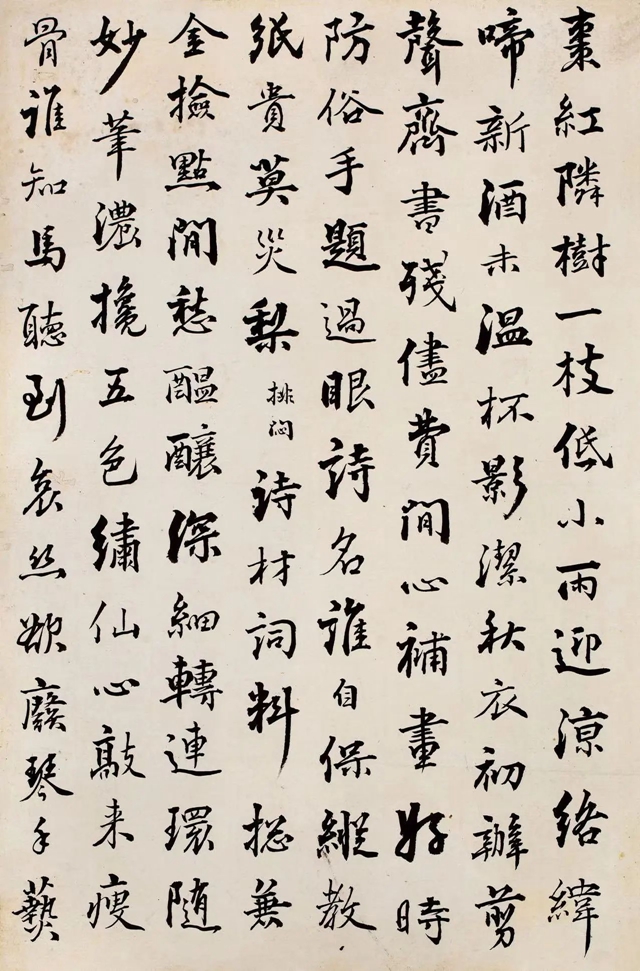 棗紅隣樹一枝低小雨迎涼絡緯
啼新酒未温杯影潔秋衣初辦剪
聲齊書殘儘費閒心補畫好時
防俗手題過眼詩名誰自保縱教
紙貴莫災梨 排悶 詩材詞料揔兼
金撿點閒愁醖釀深細轉連環隨
妙筆濃攙五色繡仙心敲来瘦
骨誰知馬聽到哀絲欲廢琴手藝